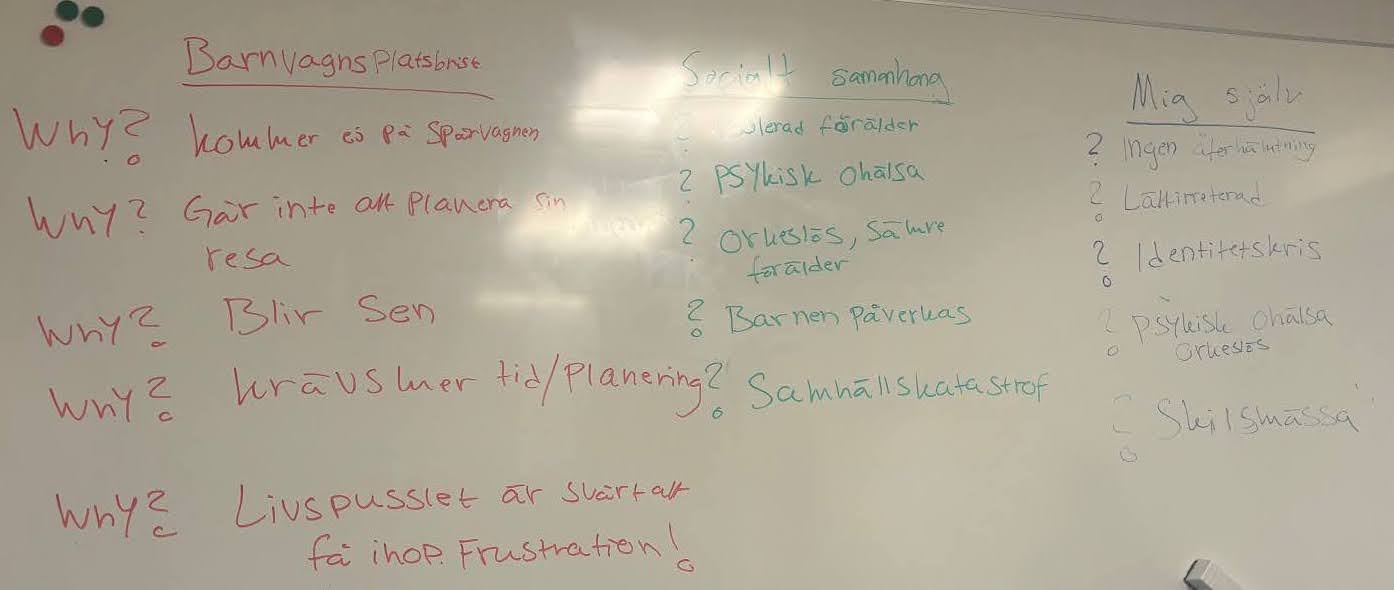 Barnvagnsplatsbrist
Why? kommer ej på Spårvagnen
Why? Går inte att Planera sin
resa
Why? Blir Sen
Why? krävs mer tid/Planering
Why? Livspusslet är svårt att
få ihop. Frustration!
Socialt samanhang
? förälder
? PSykisk Ohälsa
? Orkeslös, Sämre
förälder
? Barnen Påverkas
? Samhällskatastrof
Mig själv
? Ingen återhämtning
? Lättirreterad
? Identitetskris
? PSykisk Ohälsa
Orkeslös
? Skilsmässa